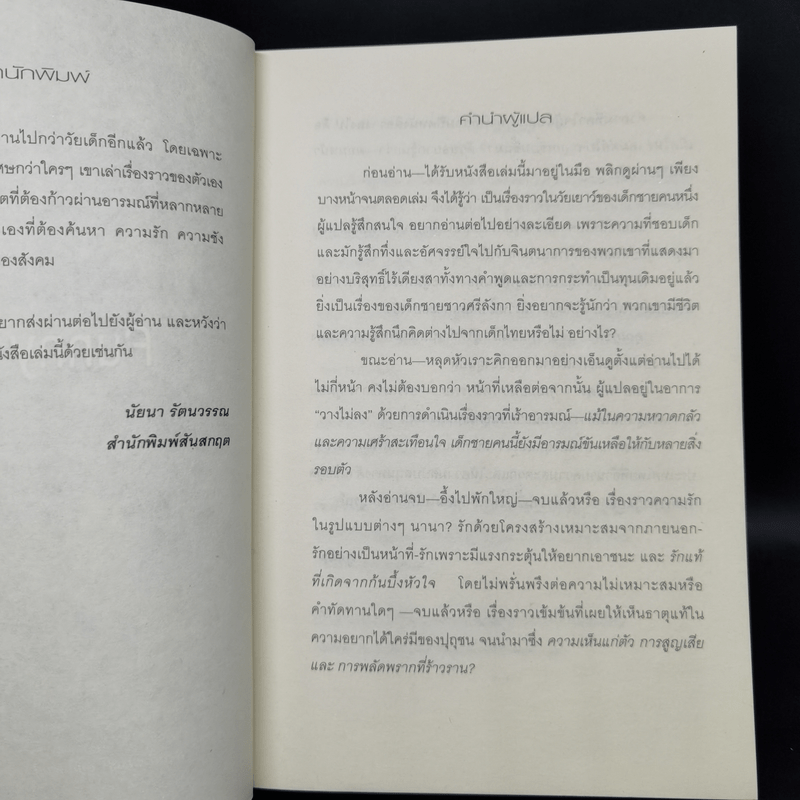 นักพิมพ์
านไปกว่าวัยเด็กอีกแล้ว โดยเฉพาะ
ศษกว่าใครๆ เขาเล่าเรื่องราวของตัวเอง
ตที่ต้องก้าวผ่านอารมณ์ที่หลากหลาย
เองที่ต้องค้นหา ความรัก ความชัง
องสังคม
ยากส่งผ่านต่อไปยังผู้อ่าน และหวังว่า
นังสือเล่มนี้ด้วยเช่นกัน
นัยนา รัตนวรรณ
สำนักพิมพ์สันสกฤต
คำนำผู้แปล
ก่อนอ่าน—ได้รับหนังสือเล่มนี้มาอยู่ในมือ พลิกดูผ่านๆ เพียง
บางหน้าจนตลอดเล่ม จึงได้รู้ว่า เป็นเรื่องราวในวัยเยาว์ของเด็กชายคนหนึ่ง
ผู้แปลรู้สึกสนใจ อยากอ่านต่อไปอย่างละเอียด เพราะความที่ชอบเด็ก
และมักรู้สึกทึ่งและอัศจรรย์ใจไปกับจินตนาการของพวกเขาที่แสดงมา
อย่างบริสุทธิ์ไร้เดียงสาทั้งทางคำพูดและการกระทำเป็นทุนเดิมอยู่แล้ว
ยิ่งเป็นเรื่องของเด็กชายชาวศรีลังกา ยิ่งอยากจะรู้นักว่า พวกเขามีชีวิต
และความรู้สึกนึกคิดต่างไปจากเด็กไทยหรือไม่ อย่างไร?
ขณะอ่าน—หลุดหัวเราะคิกออกมาอย่างเอ็นดูตั้งแต่อ่านไปได้
ไม่กี่หน้า คงไม่ต้องบอกว่า หน้าที่เหลือต่อจากนั้น ผู้แปลอยู่ในอาการ
“วางไม่ลง” ด้วยการดำเนินเรื่องราวที่เร้าอารมณ์—แม้ในความหวาดกลัว
และความเศร้าสะเทือนใจ เด็กชายคนนี้ยังมีอารมณ์ขันเหลือให้กับหลายสิ่ง
รอบตัว
หลังอ่านจบ—อึ้งไปพักใหญ่—จบแล้วหรือ เรื่องราวความรัก
ในรูปแบบต่างๆ นานา? รักด้วยโครงสร้างเหมาะสมจากภายนอก-
รักอย่างเป็นหน้าที่-รักเพราะมีแรงกระตุ้นให้อยากเอาชนะ และ รักแท้
ที่เกิดจากก้นบึ้งหัวใจ โดยไม่พรั่นพรึงต่อความไม่เหมาะสมหรือ
คำทัดทานใดๆ —จบแล้วหรือ เรื่องราวเข้มข้นที่เผยให้เห็นธาตุแท้ใน
ความอยากได้ใคร่มีของปุถุชน จนนำมาซึ่ง ความเห็นแก่ตัว การสูญเสีย
และ การพลัดพรากที่ร้าวราน?